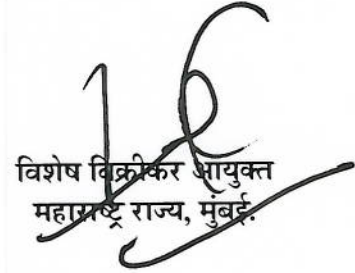 विशेष विक्रीकर आयुक्त
महाराष्ट्र राज्य, मुंबई.